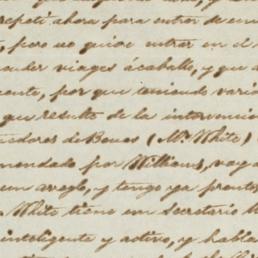 repetí ahora para entrar de en
, pero no quise entrar en el
nder viages ácaballo, y que a
ente, por que teniendo vari
que resulto de la intervencion
edores de Bonos (Mr. White)
mendado por Williams, voy a
un areglo, y tengo ya pronto
White tiene un Secretario
inteligente y activo, y habla